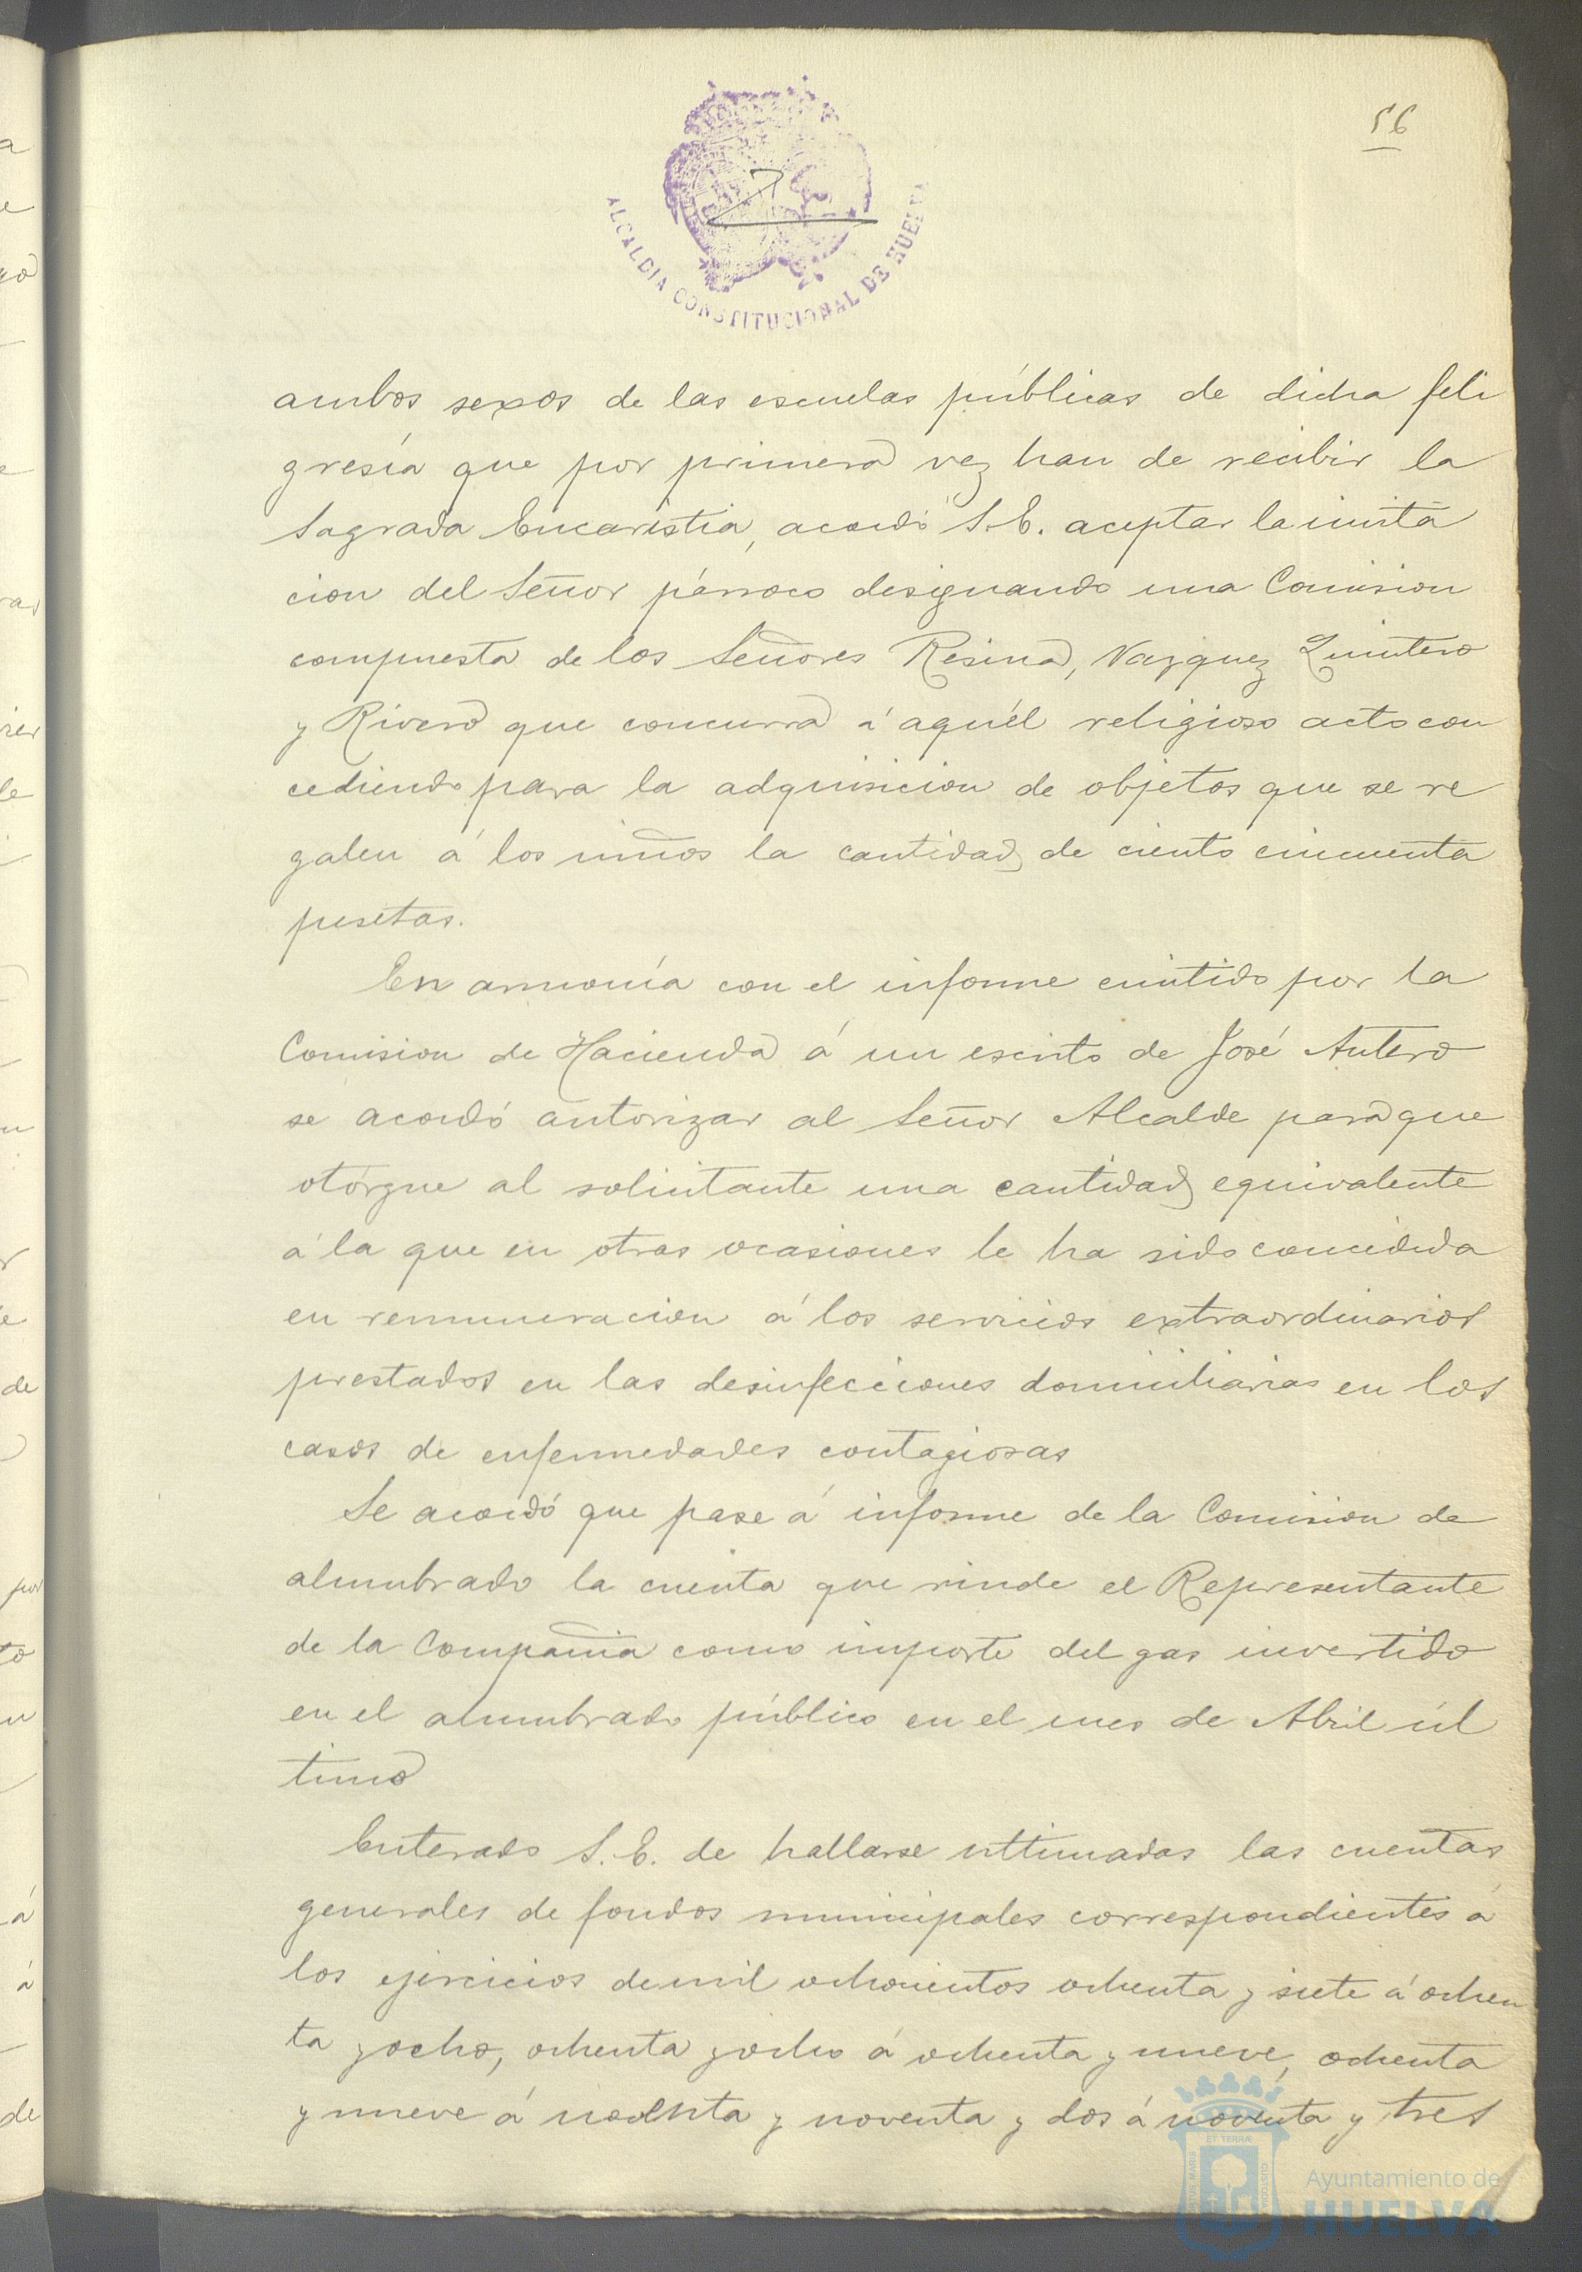 56
ALCALDIA CONSTITUCIONAL DE HUELVA
ambos sexos de las escuelas públicas de dicha feli
gresía que por primera vez han de recibir la
Sagrada Eucaristia, acordó S. E. aceptar la invita
cion del Señor párroco designando una Comision
compuesta de los Señores Resina, Vazquez Quintero
y Rivero que concurra á aquél religioso acto con
cediendo para la adquisicion de objetos que se re
galen á los niños la cantidad de ciento cincuenta
pesetas.
En armonía con el informe emitido por la
Comision de Hacienda á un escrito de José Antero
se acordó autorizar al Señor Alcalde para que
otórgue al solicitante una cantidad equivalente
á la que en otras ocasiones le ha sido concedida
en remuneracion á los servicios extraordinarios
prestados en las desinfecciones domiciliarias en los
casos de enfermedades contagiosas
Se acordó que pase á informe de la Comision de
alumbrado la cuenta que rinde el Representante
de la Compañia como importe del gas invertido
en el alumbrado público en el mes de Abril úl
timo
Enterado S. E. de hallarse ultimadas las cuentas
generales de fondos municipales correspondientes á
los ejercicios de mil ochocientos ochenta y siete á ochen
ta y ocho, ochenta y ocho á ochenta y nueve, ochenta
y nueve á noventa y noventa y dos á noventa y tres
Ayuntamiento de
HUELVA